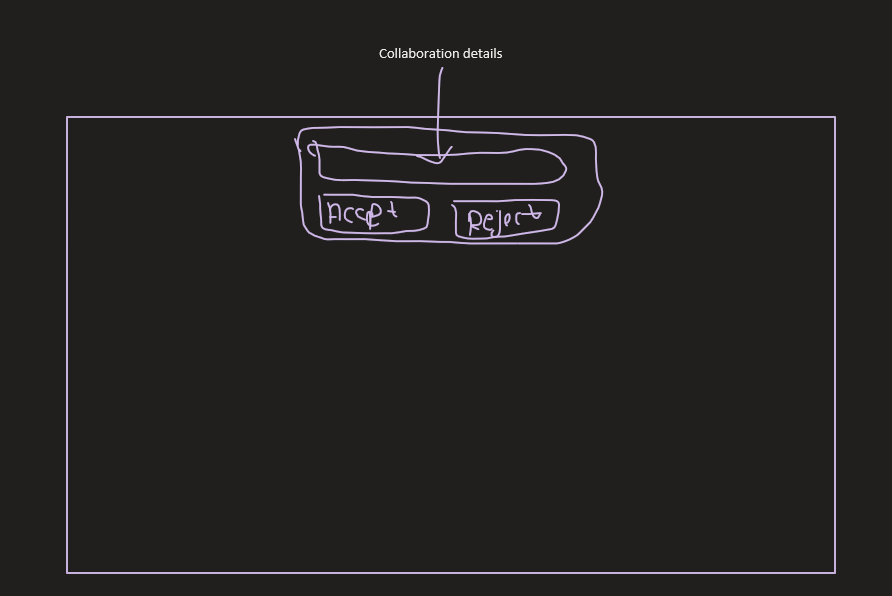 Collaboration details
Accept
Reject